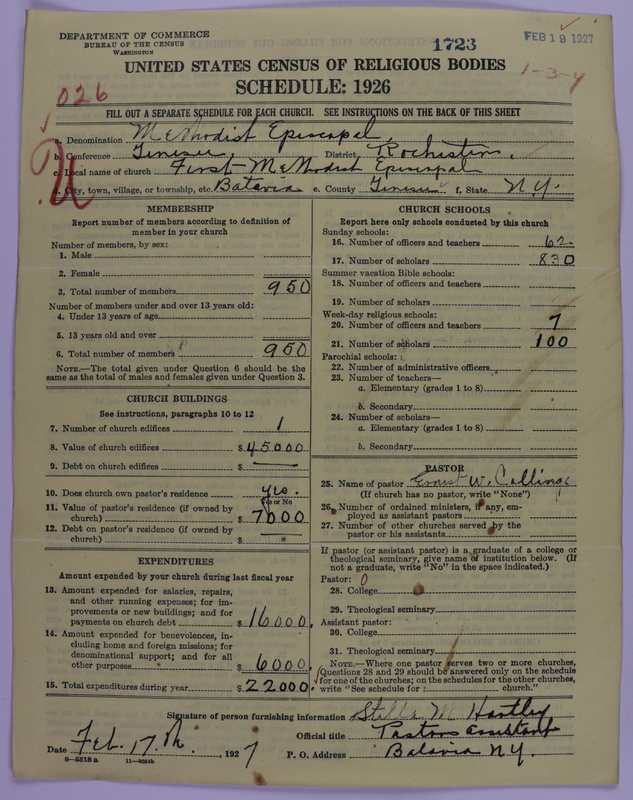 DEPARTMENT OF COMMERCE
BUREAU OF THE CENSUS
WASHINGTON
1723
FEB 19 1927
UNITED STATES CENSUS OF RELIGIOUS BODIES
1-3-4
SCHEDULE: 1926
026
FILL OUT A SEPARATE SCHEDULE FOR EACH CHURCH. SEE INSTRUCTIONS ON THE BACK OF THIS SHEET
a. Denomination Methodist Episcopal
b. Conference Genesee District Rochester.
c. Local name of church First Methodist Episcopal
d. City, town, village, or township, etc. Batavia e. County Genesee f. State N.Y.
MEMBERSHIP
Report number of members according to definition of
member in your church
Number of members, by sex:
1. Male
2. Female
3. Total number of members 950
Number of members under and over 13 years old:
4. Under 13 years of age
5. 13 years old and over
6. Total number of members 950
NOTE.—The total given under Question 6 should be
same as the total of males and females given under Question 3.
CHURCH BUILDINGS
See instructions, paragraphs 10 to 12
7. Number of church edifices 1
8. Value of church edifices $ 45000
9. Debt on church edifices $ —
10. Does church own pastor's residence yes.
Yes or No
11. Value of pastor's residence (if owned by
church) $ 7000
12. Debt on pastor's residence (if owned by
church) $ —
EXPENDITURES
Amount expended by your church during last fiscal year
13. Amount expended for salaries, repairs,
and other running expenses; for im-
provements or new buildings; and for
payments on church debt $ 16000.
14. Amount expended for benevolences, in-
cluding home and foreign missions; for
denominational support; and for all
other purposes $ 6000.
15. Total expenditures during year $ 22000.
CHURCH SCHOOLS
Report here only schools conducted by this church
Sunday schools:
16. Number of officers and teachers 62
17. Number of scholars 830
Summer vacation Bible schools:
18. Number of officers and teachers
19. Number of scholars
Week-day religious schools:
20. Number of officers and teachers 7
21. Number of scholars 100
Parochial schools:
22. Number of administrative officers
23. Number of teachers—
a. Elementary (grades 1 to 8)
b. Secondary
24. Number of scholars—
a. Elementary (grades 1 to 8)
b. Secondary
PASTOR
25. Name of pastor Ernest W. Collings
(If church has no pastor, write "None")
26. Number of ordained ministers, if any, em-
ployed as assistant pastors
27. Number of other churches served by the
pastor or his assistants
If pastor (or assistant pastor) is a graduate of a college or
theological seminary, give name of institution below. (If
not a graduate, write "No" in the space indicated.)
Pastor: 0
28. College
29. Theological seminary
Assistant pastor:
30. College
31. Theological seminary
NOTE.—Where one pastor serves two or more churches,
Questions 28 and 29 should be answered only on the schedule
for one of the churches; on the schedules for the other churches,
write "See schedule for church."
Signature of person furnishing information Stella M Hartley
Official title Pastors assistant
Date Feb. 17.th, 1927
P. O. Address Batavia N.Y.
8-5318a 11-9034b